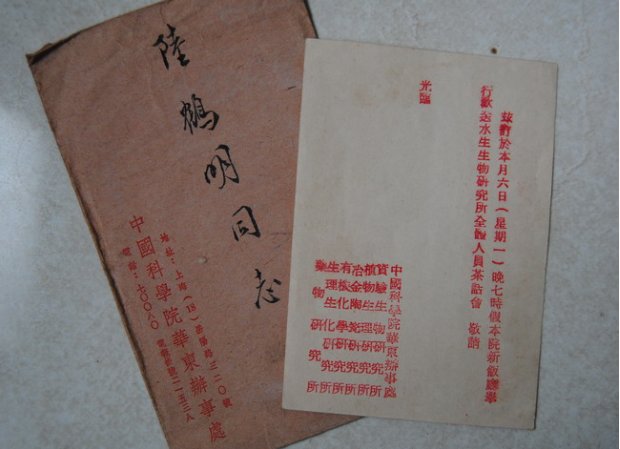 陸鶴明同志
地址：上海(18)岳陽路三二〇號
中國科學院華東辦事處
電話：
茲訂於本月六日(星期一)晚七時假本院新飯廳舉
行歡送水生生物研究所全體人員茶話會 敬請
光臨
中國科學院華東辦事處
實驗生物研究所
植物生理研究所
冶金陶瓷研究所
有機化學研究所
生理生化研究所
藥物研究所